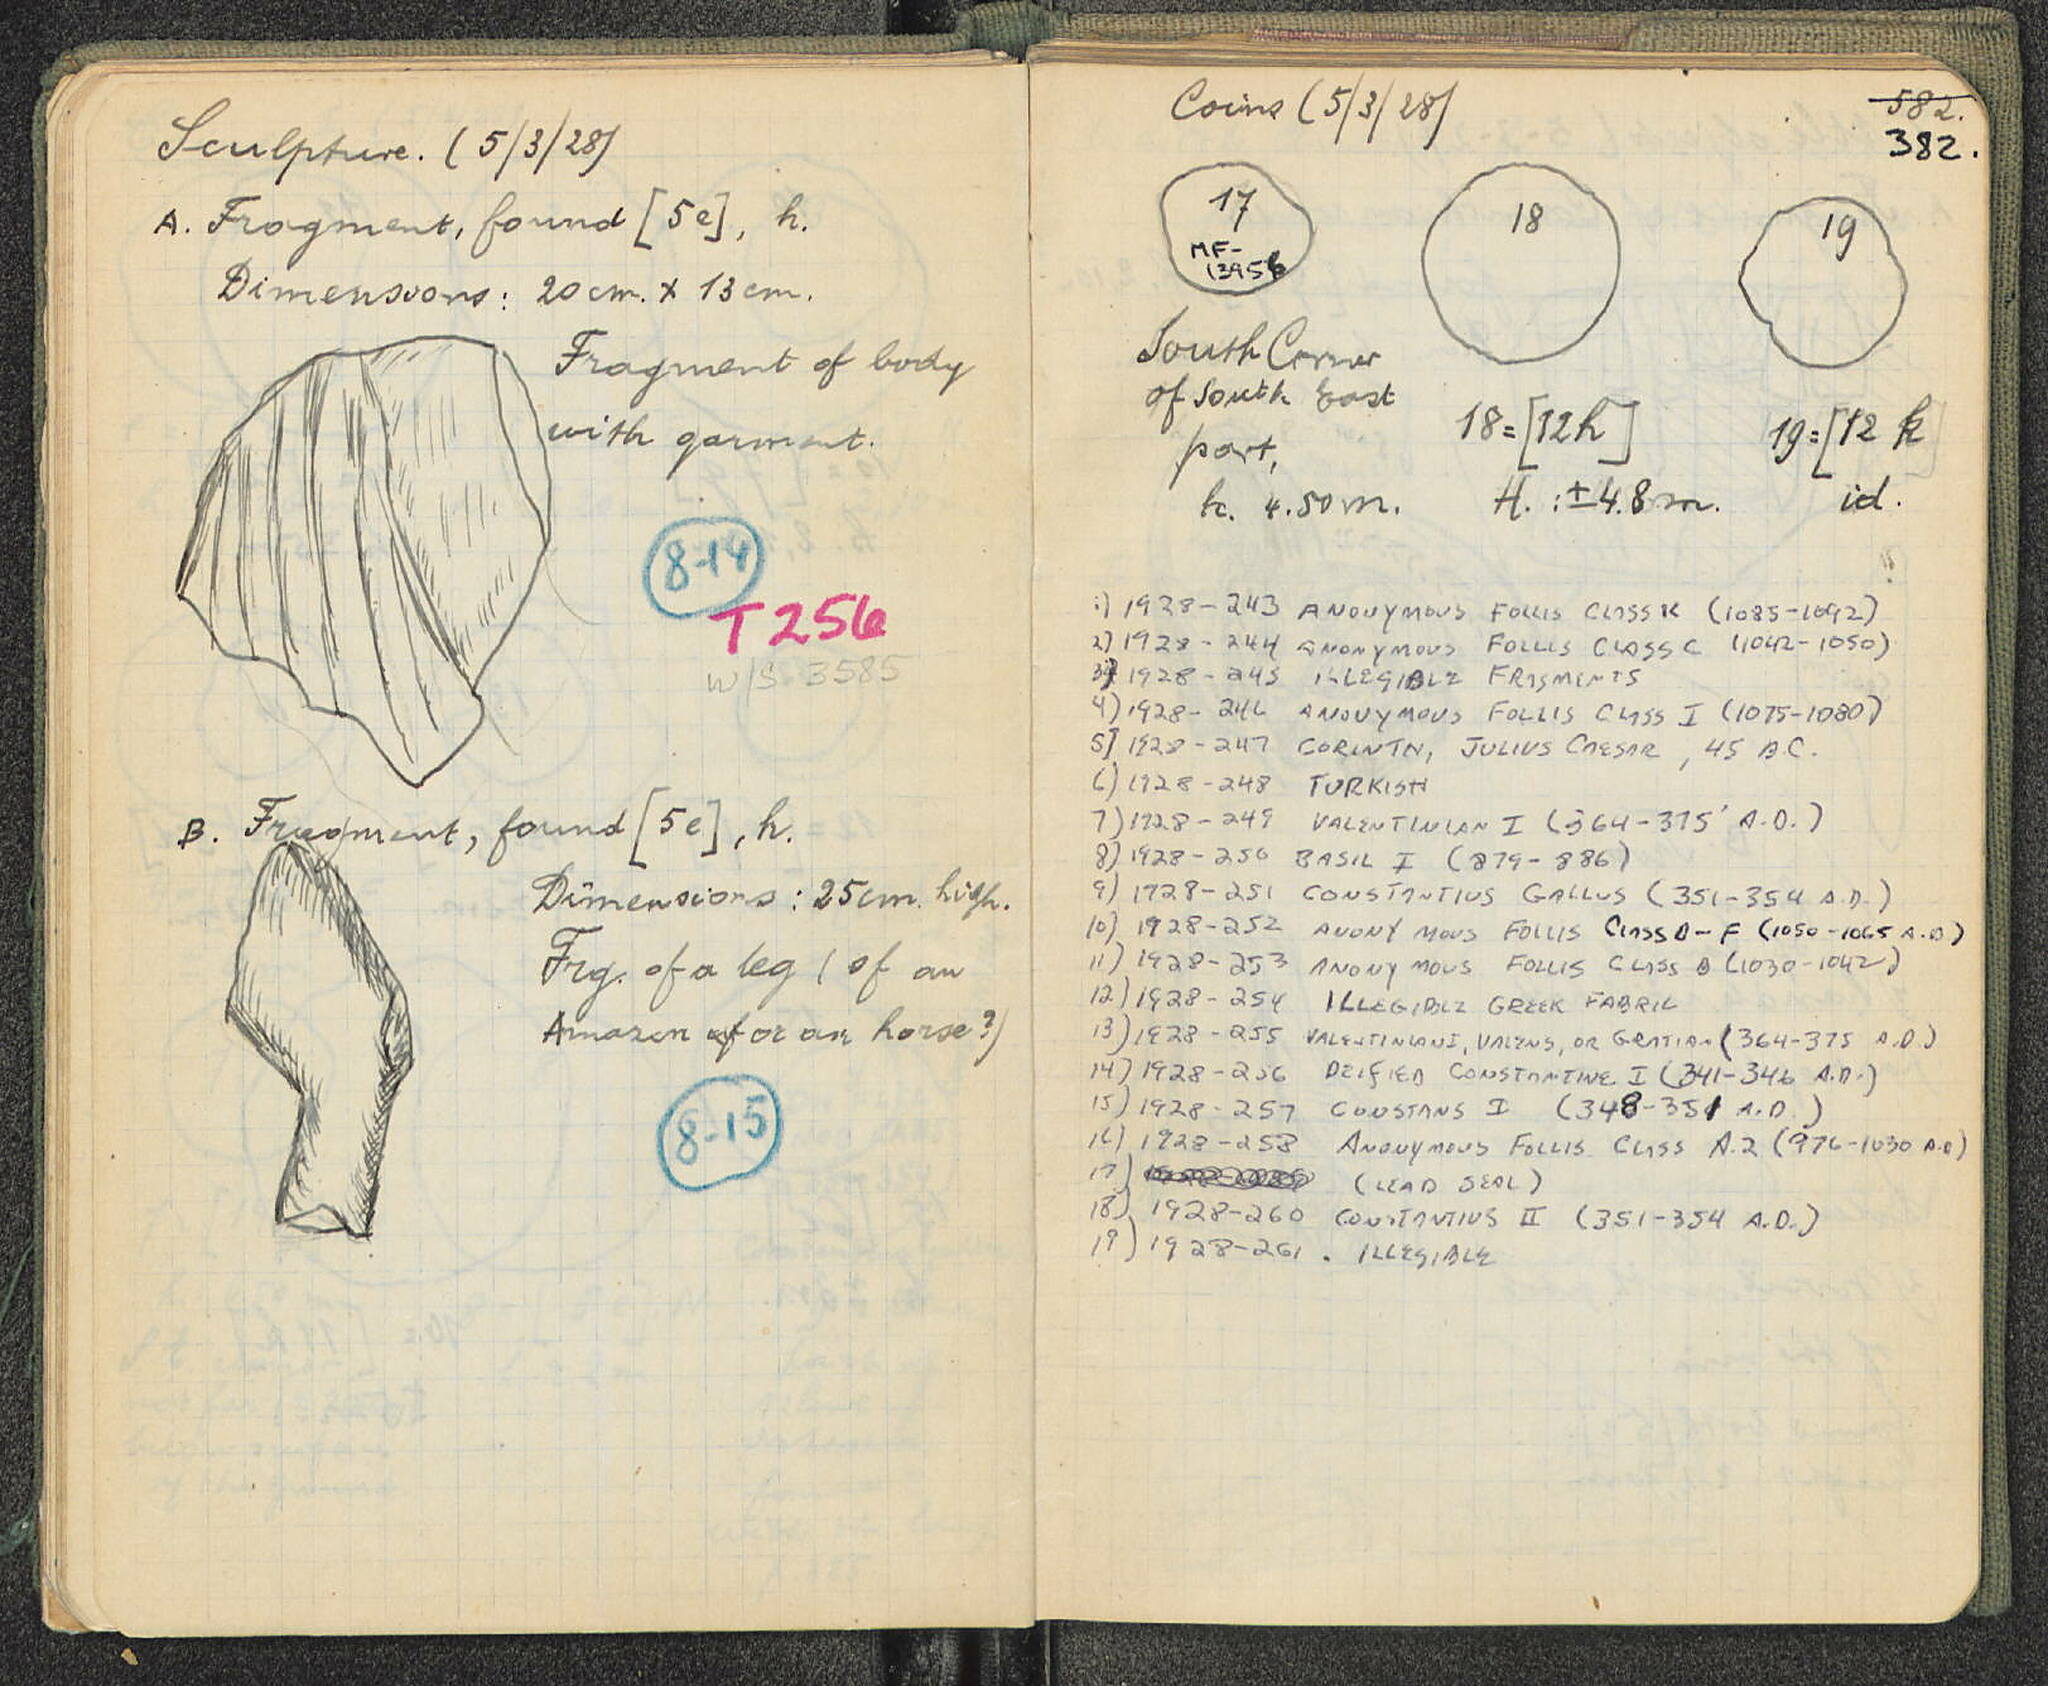 Sculpture. (5/3/28)
A. Fragment, found [5e], h.
Dimensions: 20cm. x 13cm.
Fragment of body
with garment.
8-14
T256
W/S 3585
B. Fragment, found [5e], h.
Dimensions: 25cm. high.
Frg. of a leg ( of an
Amazon or an horse?)
8-15
Coins (5/3/28)
582.
382.
17
MF-
13956
18
19
South Corner
of South East
part,
h. 4.50m.
18=[12h]
H. : ±4.8m.
19=[12 k]
id.
1) 1928-243 ANONYMOUS FOLLIS CLASS K (1085-1092)
2) 1928-244 ANONYMOUS FOLLIS CLASS C (1042-1050)
3) 1928-245 ILLEGIBLE FRAGMENTS
4) 1928-246 ANONYMOUS FOLLIS CLASS I (1075-1080)
5) 1928-247 CORINTH, JULIUS CAESAR, 45 B.C.
6) 1928-248 TURKISH
7) 1928-249 VALENTINIAN I (364-375 A.D.)
8) 1928-250 BASIL I (879-886)
9) 1928-251 CONSTANTIUS GALLUS (351-354 A.D.)
10) 1928-252 ANONYMOUS FOLLIS CLASS D-F (1050-1065 A.D)
11) 1928-253 ANONYMOUS FOLLIS CLASS B (1030-1042)
12) 1928-254 ILLEGIBLE GREEK FABRIC
13) 1928-255 VALENTINIAN I, VALENS, OR GRATIAN (364-375 A.D.)
14) 1928-256 DEIFIED CONSTANTINE I (341-346 A.D.)
15) 1928-257 CONSTANS I (348-351 A.D.)
16) 1928-258 ANONYMOUS FOLLIS CLASS A.2 (976-1030 A.D)
17) (LEAD SEAL)
18) 1928-260 CONSTANTIUS II (351-354 A.D.)
19) 1928-261. ILLEGIBLE